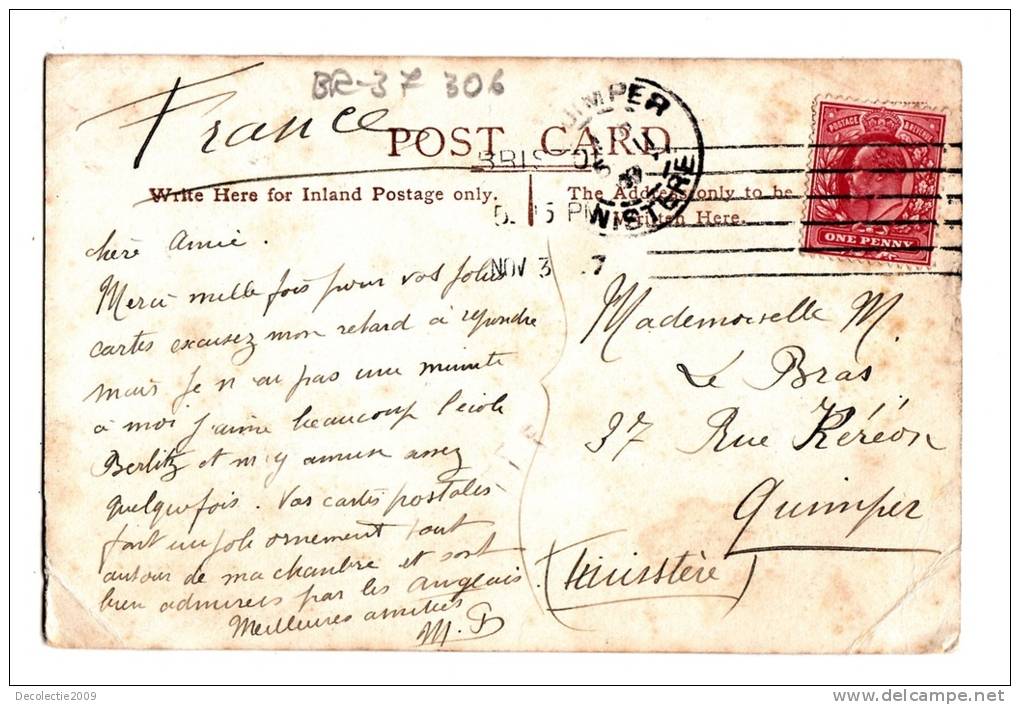 BR-37 306
France
POST CARD.
Write Here for Inland Postage only.
The Address only to be
Written Here.
BRISTOL
5 PM
NOV 3 7
QUIMPER
FINISTERE
POSTAGE REVENUE
ONE PENNY
chère Amie.
Merci mille fois pour vos jolies
cartes excusez mon retard à repondre
mais je n'ai pas une minute
à moi j'aime beaucoup l'école
Berlitz et m'y amuse assez
quelquefois. Vos cartes postales
font un joli ornement tout
autour de ma chambre et sont
bien admirées par les Anglais.
Meilleures amitiés
M.
Mademoiselle M.
Le Bras
37 Rue Kéréon
Quimper
(Finisstère)
Decolectie2009
www.delcampe.net